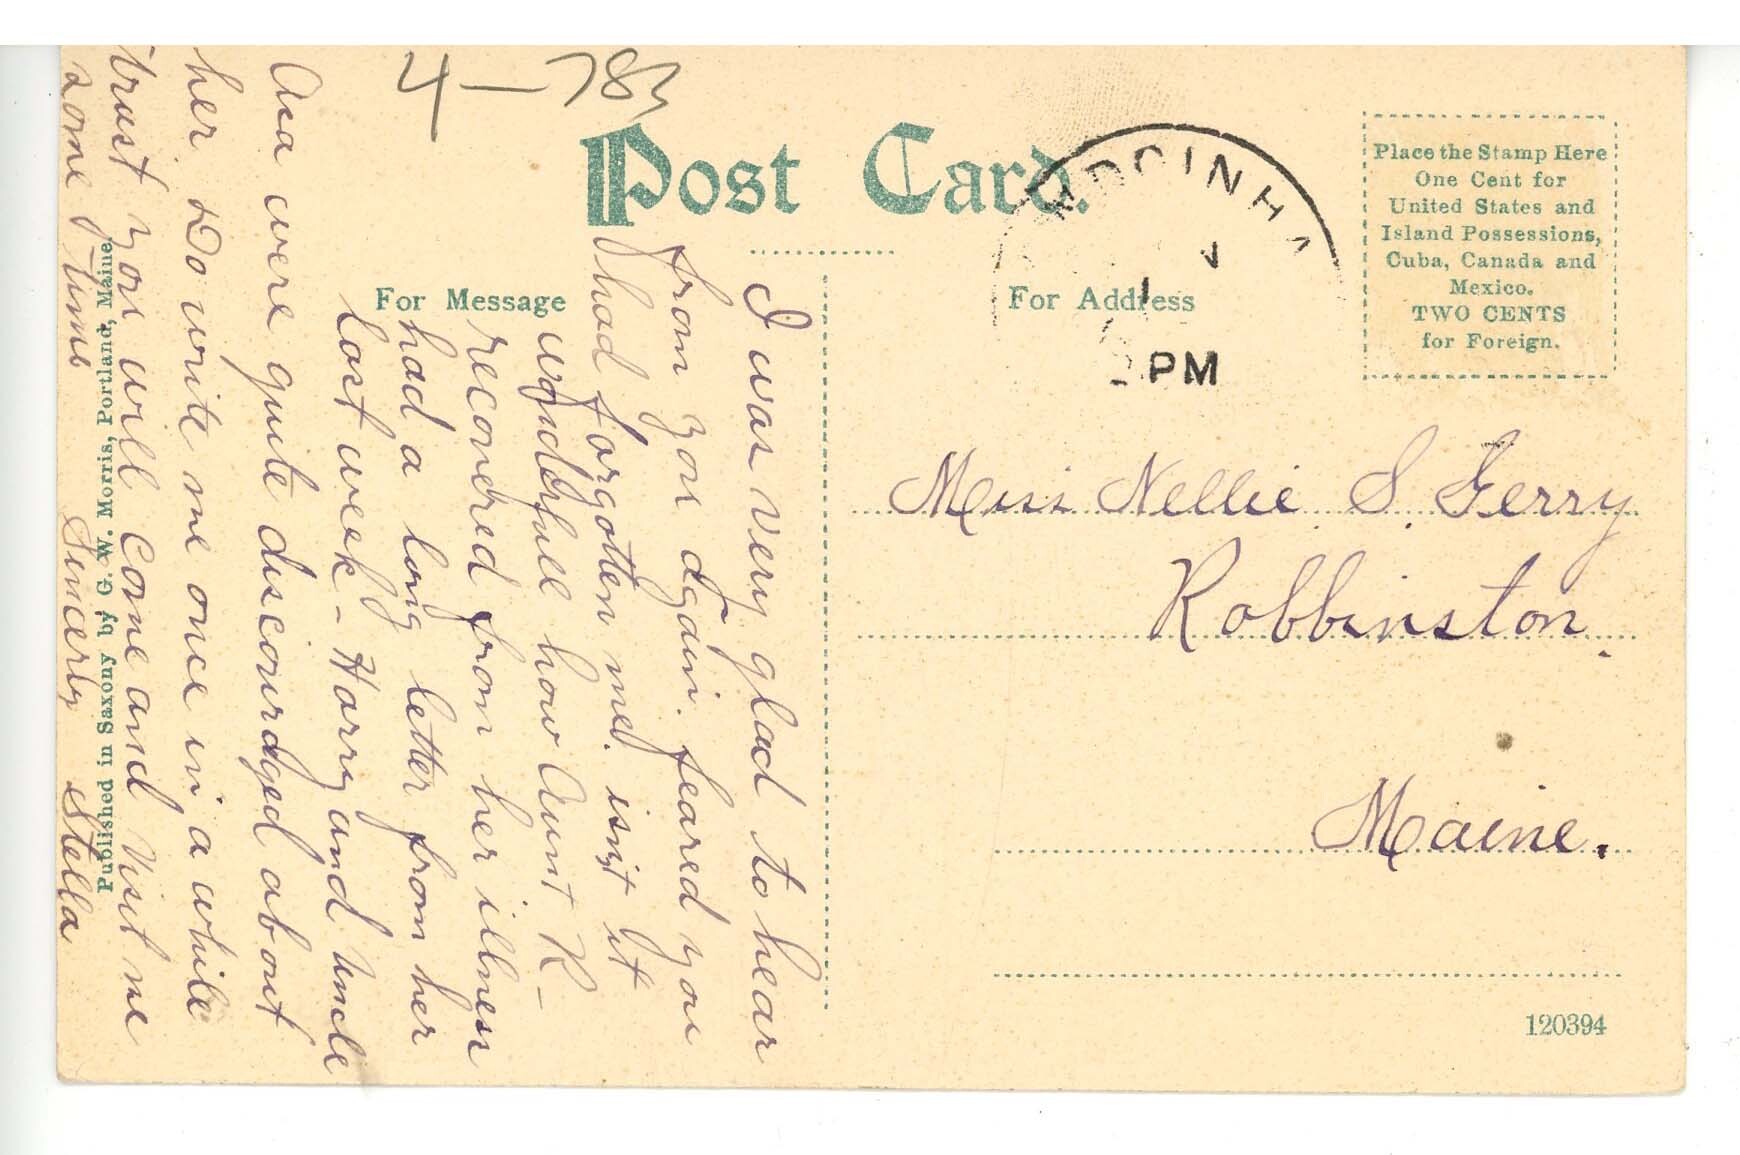 4-783
Post Card.
For Message
For Address
Place the Stamp Here
One Cent for
United States and
Island Possessions,
Cuba, Canada and
Mexico.
TWO CENTS
for Foreign.
PM
I was very glad to hear
from you again. feared you
had forgotten me. isn't it
wonderfull how Aunt R-
recovered from her illness
had a long letter from her
last week - Harry and Uncle
Asa were quite discouraged about
her Do write me once in a while
trust you will come and visit me
some time Sincerly Stella
Miss Nellie S. Gerry
Robbinston
Maine.
Published in Saxony by G. W. Morris, Portland, Maine.
120394